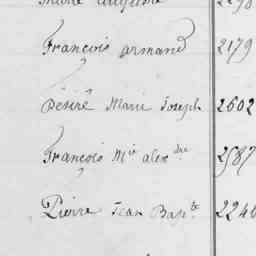 François armand 2179
Désiré Marie Joseph 2602
François Mie alexdre 2587
Pierre Jean Bapte 2246